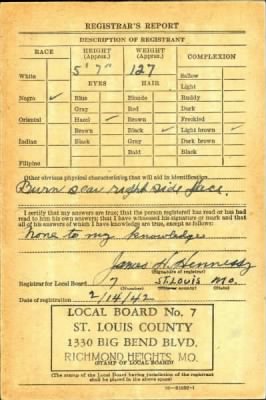 REGISTRAR'S REPORT
DESCRIPTION OF REGISTRANT
RACE HEIGHT (Approx.) WEIGHT (Approx.) COMPLEXION
5' 7" 127
White Sallow
EYES HAIR
Light
Negro ✓ Blue Blonde Ruddy
Gray Red Dark
Oriental Hazel ✓ Brown Freckled
Brown Black ✓ Light brown ✓
Indian Black Gray Dark brown
Bald Black
Filipino
Other obvious physical characteristic that will aid in identification.
Burn scar right side face.
I certify that my answers are true; that the person registered has read or has had
read to him his own answers; that I have witnessed his signature or mark and that
all of his answers of which I have knowledge are true, except as follows:
none to my knowledge
James H. Hennessy
(Signature of registrar)
Registrar for Local Board 7 ST. LOUIS MO.
(Number)
Date of registration 2/14/42
LOCAL BOARD No. 7
ST. LOUIS COUNTY
1330 BIG BEND BLVD.
RICHMOND HEIGHTS, MO.
(STAMP OF LOCAL BOARD)
(The stamp of the Local Board having jurisdiction of the registrant
shall be placed in the above space.)